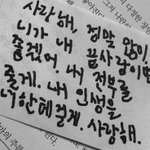 사랑해, 정말 많이.
니가 내 끝사랑이면
좋겠어. 내 전부를
줄게. 내 인생을
너한테 걸게. 사랑해.